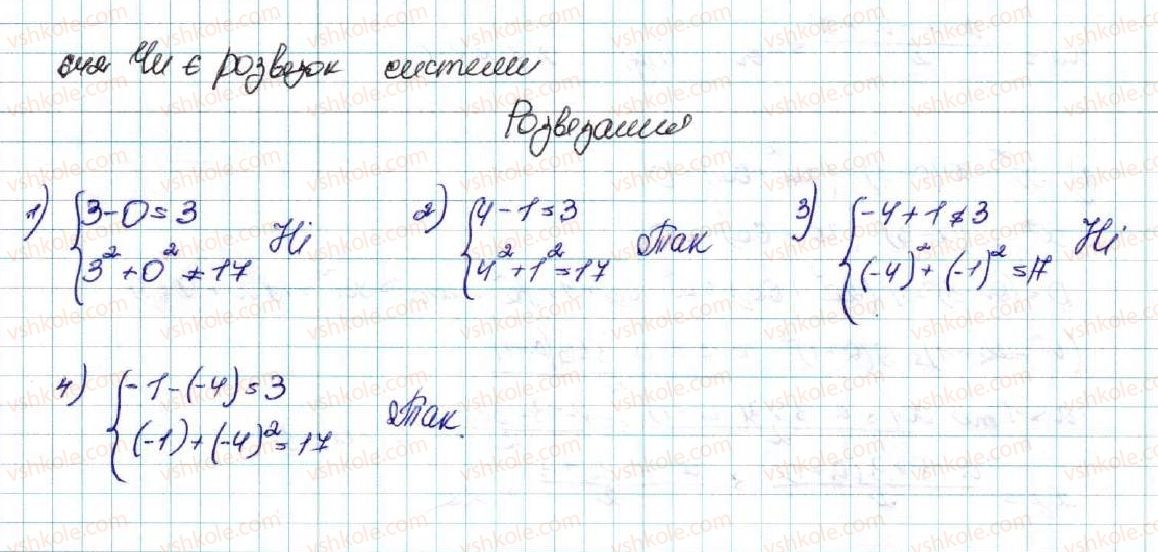 Чи є розвезок системи
Розвезання
1) { 3 - 0 = 3
3² + 0² ≠ 17 Ні
2) { 4 - 1 = 3
4² + 1² = 17 Так
3) { -4 + 1 ≠ 3
(-4)² + (-1)² = 17 Ні
4) { -1 - (-4) = 3
(-1) + (-4)² = 17 Так.